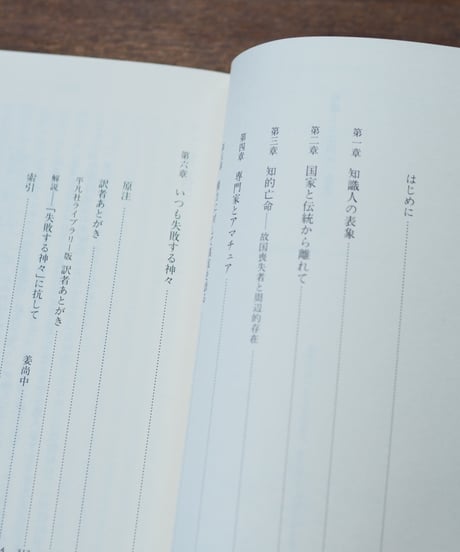 はじめに
第一章 知識人の表象
第二章 国家と伝統から離れて
第三章 知的亡命 故国喪失者と周辺的存在
第四章 専門家とアマチュア
第六章 いつも失敗する神々
原注
訳者あとがき
平凡社ライブラリー版 訳者あとがき
解説——「失敗する神々」に抗して 姜尚中
索引